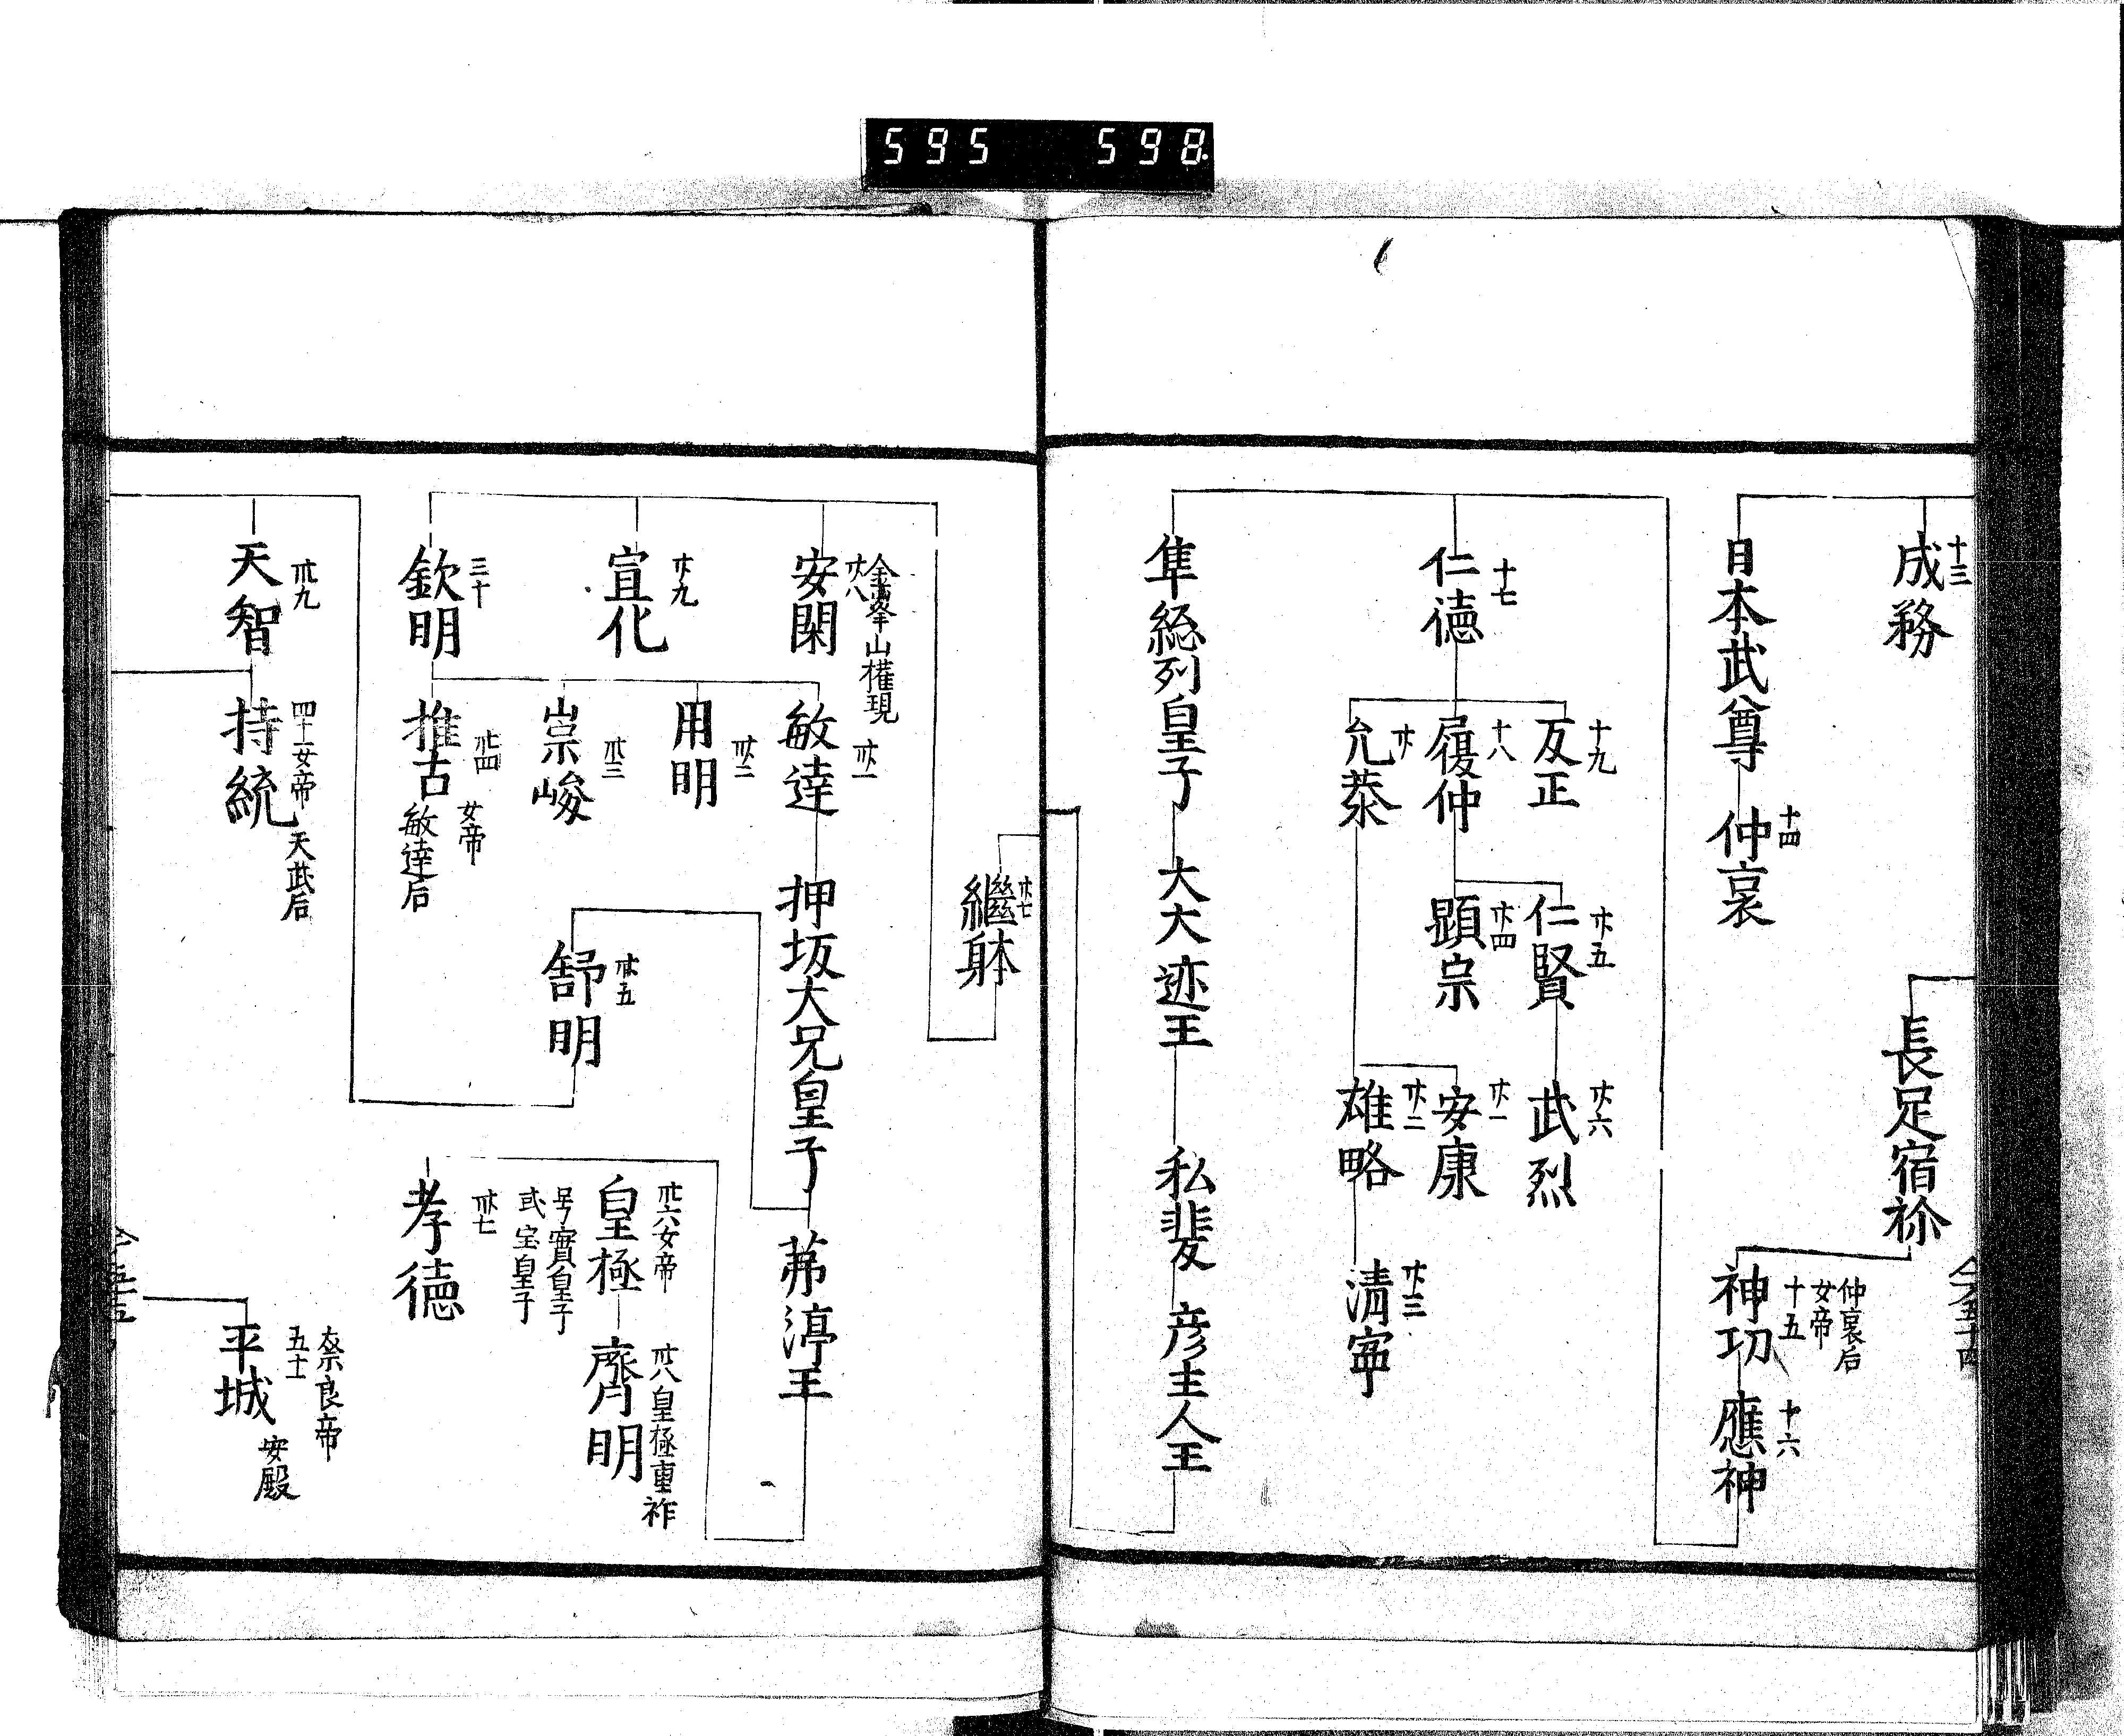 595 598.
十三
成務
長足宿祢
日本武尊
十四
仲哀
仲哀后
女帝
十五
神功
十六
應神
十七
仁德
十九
反正
十八
履仲
卄
允恭
卄五
仁賢
卄四
顕宗
卄六
武烈
卄一
安康
卄二
雄略
卄三
清寧
隼総列皇子
大大迹王
私斐
彦主人王
卄七
繼躰
金峯山権現
卄八
安閑
卄九
宣化
三十
欽明
卅一
敏達
卅二
用明
卅三
崇峻
卅四
推古
女帝
敏達后
押坂大兄皇子
卅五
舒明
茅渟王
卅六女帝
皇極
号寳皇子
或宝皇子
卅八皇極重祚
齊明
卅七
孝徳
卅九
天智
四十一女帝
天武后
持統
奈良帝
五十一
平城
安殿